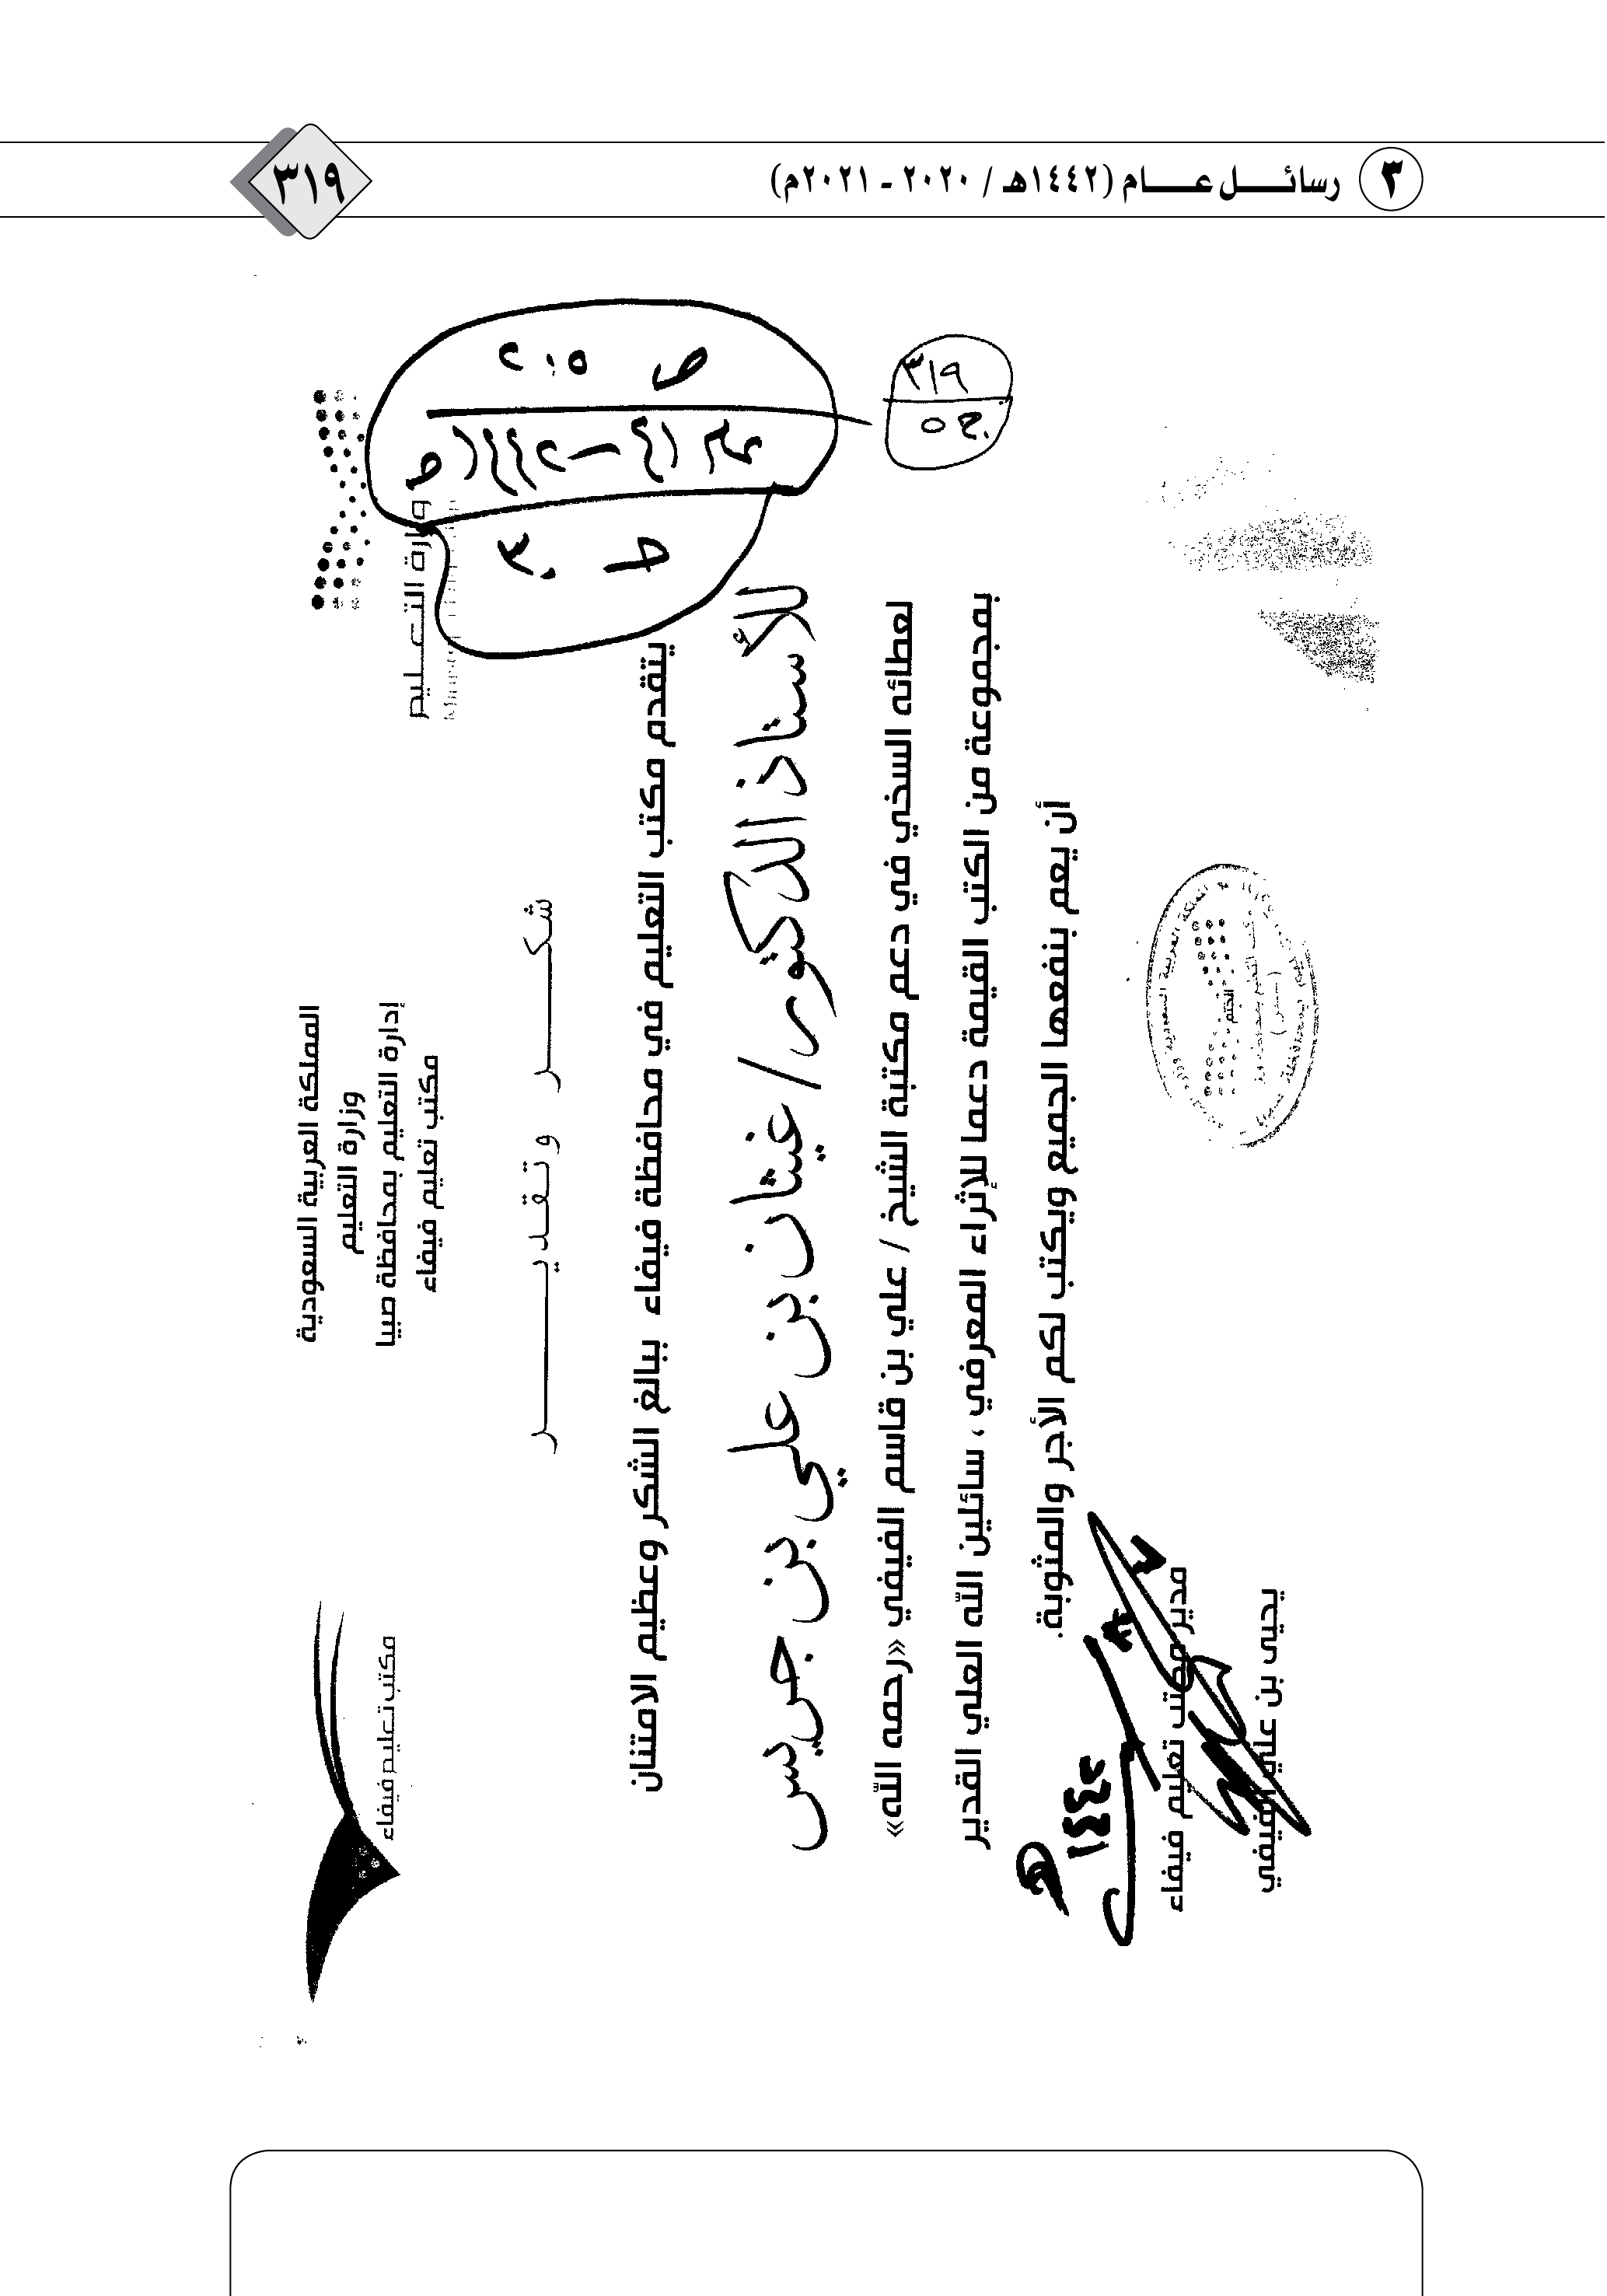 ٣ رسائـــل عـــــام (١٤٤٢هـ / ٢٠٢٠ - ٢٠٢١م)
٣١٩
ص ٢٠٥
ط ٣٠
٣١٩
وزارة التـعـلـيم
المملكة العربية السعودية
وزارة التعليم
إدارة التعليم بمحافظة صبيا
مكتب تعليم فيفاء
مكتب تـعـليـم فيفاء
شكـــــــر وتـقـديـــــــر
يتقدم مكتب التعليم في محافظة فيفاء ببالغ الشكر وعظيم الامتنان
للأستاذ الدكتور/ غيثان بن علي بن جريس
لعطائه السخي في دعم مكتبة الشيخ / علي بن قاسم الفيفي «رحمه الله»
بمجموعة من الكتب القيمة دعما للإثراء المعرفي ، سائلين الله العلي القدير
أن يعم بنفعها الجميع ويكتب لكم الأجر والمثوبة.
مدير مكتب تعليم فيفاء
يحيى بن علي الفيفي
١٤٤٢
هـ